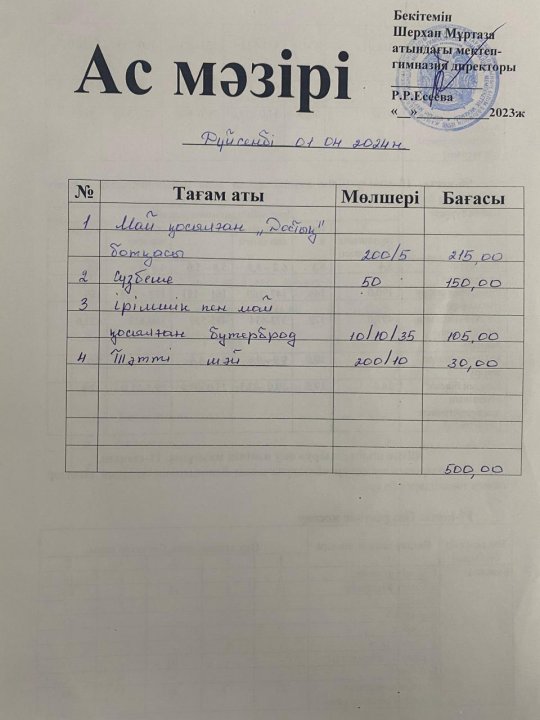 Бекітемін
Шерхан Мұртаза
атындағы мектеп-
гимназия директоры
Р.Р.Есеева
«__»__________2023ж
Ас мәзірі
Дүйсенбі 01 04 2024ж
№ Тағам аты Мөлшері Бағасы
1 Май қосылған „Достық"
ботқасы 200/5 215,00
2 Сүзбеше 50 150,00
3 ірімшік пен май
қосылған бутерброд 10/10/35 105,00
4 Тәтті шәй 200/10 30,00
500,00